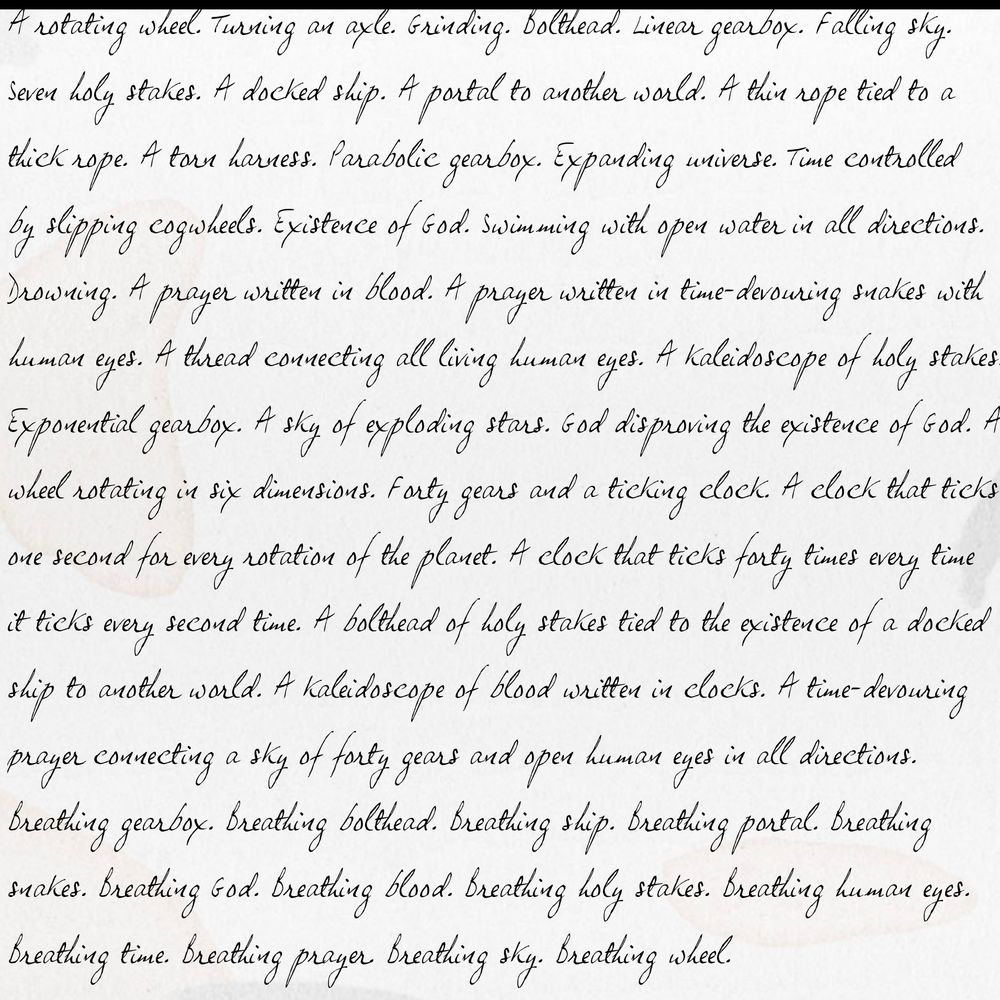 A rotating wheel. Turning an axle. Grinding. Bolthead. Linear gearbox. Falling sky.
Seven holy stakes. A docked ship. A portal to another world. A thin rope tied to a
thick rope. A torn harness. Parabolic gearbox. Expanding universe. Time controlled
by slipping cogwheels. Existence of God. Swimming with open water in all directions.
Drowning. A prayer written in blood. A prayer written in time-devouring snakes with
human eyes. A thread connecting all living human eyes. A kaleidoscope of holy stakes.
Exponential gearbox. A sky of exploding stars. God disproving the existence of God. A
wheel rotating in six dimensions. Forty gears and a ticking clock. A clock that ticks
one second for every rotation of the planet. A clock that ticks forty times every time
it ticks every second time. A bolthead of holy stakes tied to the existence of a docked
ship to another world. A kaleidoscope of blood written in clocks. A time-devouring
prayer connecting a sky of forty gears and open human eyes in all directions.
Breathing gearbox. Breathing bolthead. Breathing ship. Breathing portal. Breathing
snakes. Breathing God. Breathing blood. Breathing holy stakes. Breathing human eyes.
Breathing time. Breathing prayer. Breathing sky. Breathing wheel.